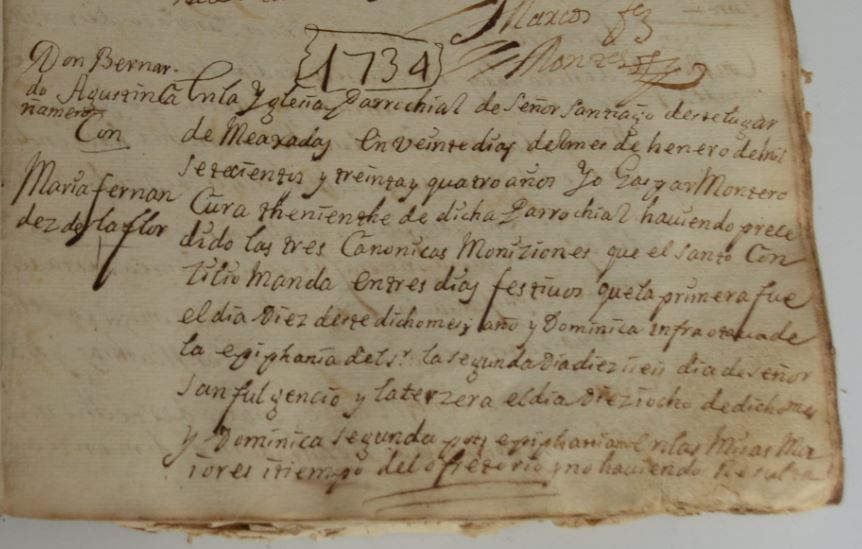 Marcos frz
Montero
1734
Don Bernar-
do Agustin Ca
ñamero
Con
Maria fernan
dez de la flor
En la Yglesia Parrochial de Señor santiago deste lugar
de Meaxadas En veinte dias del mes de henero de mil
setecientos y treinta y quatro años Yo Gaspar Montero
Cura theniente de dicha Parrochial haviendo prece
dido las tres Canonicas Moniziones que el santo Con
cilio Manda En tres dias festivos que la primera fue
el dia Diez deste dicho mes y año y Dominica infraoctava de
la epiphania del sr. la segunda Dia diez i seis dia de señor
san fulgencio y la terzera el dia Dieziocho de dicho mes
y Dominica segunda post epiphaniam En las Misas Ma
iores i tiempo del ofretorio y no haviendo Resulta